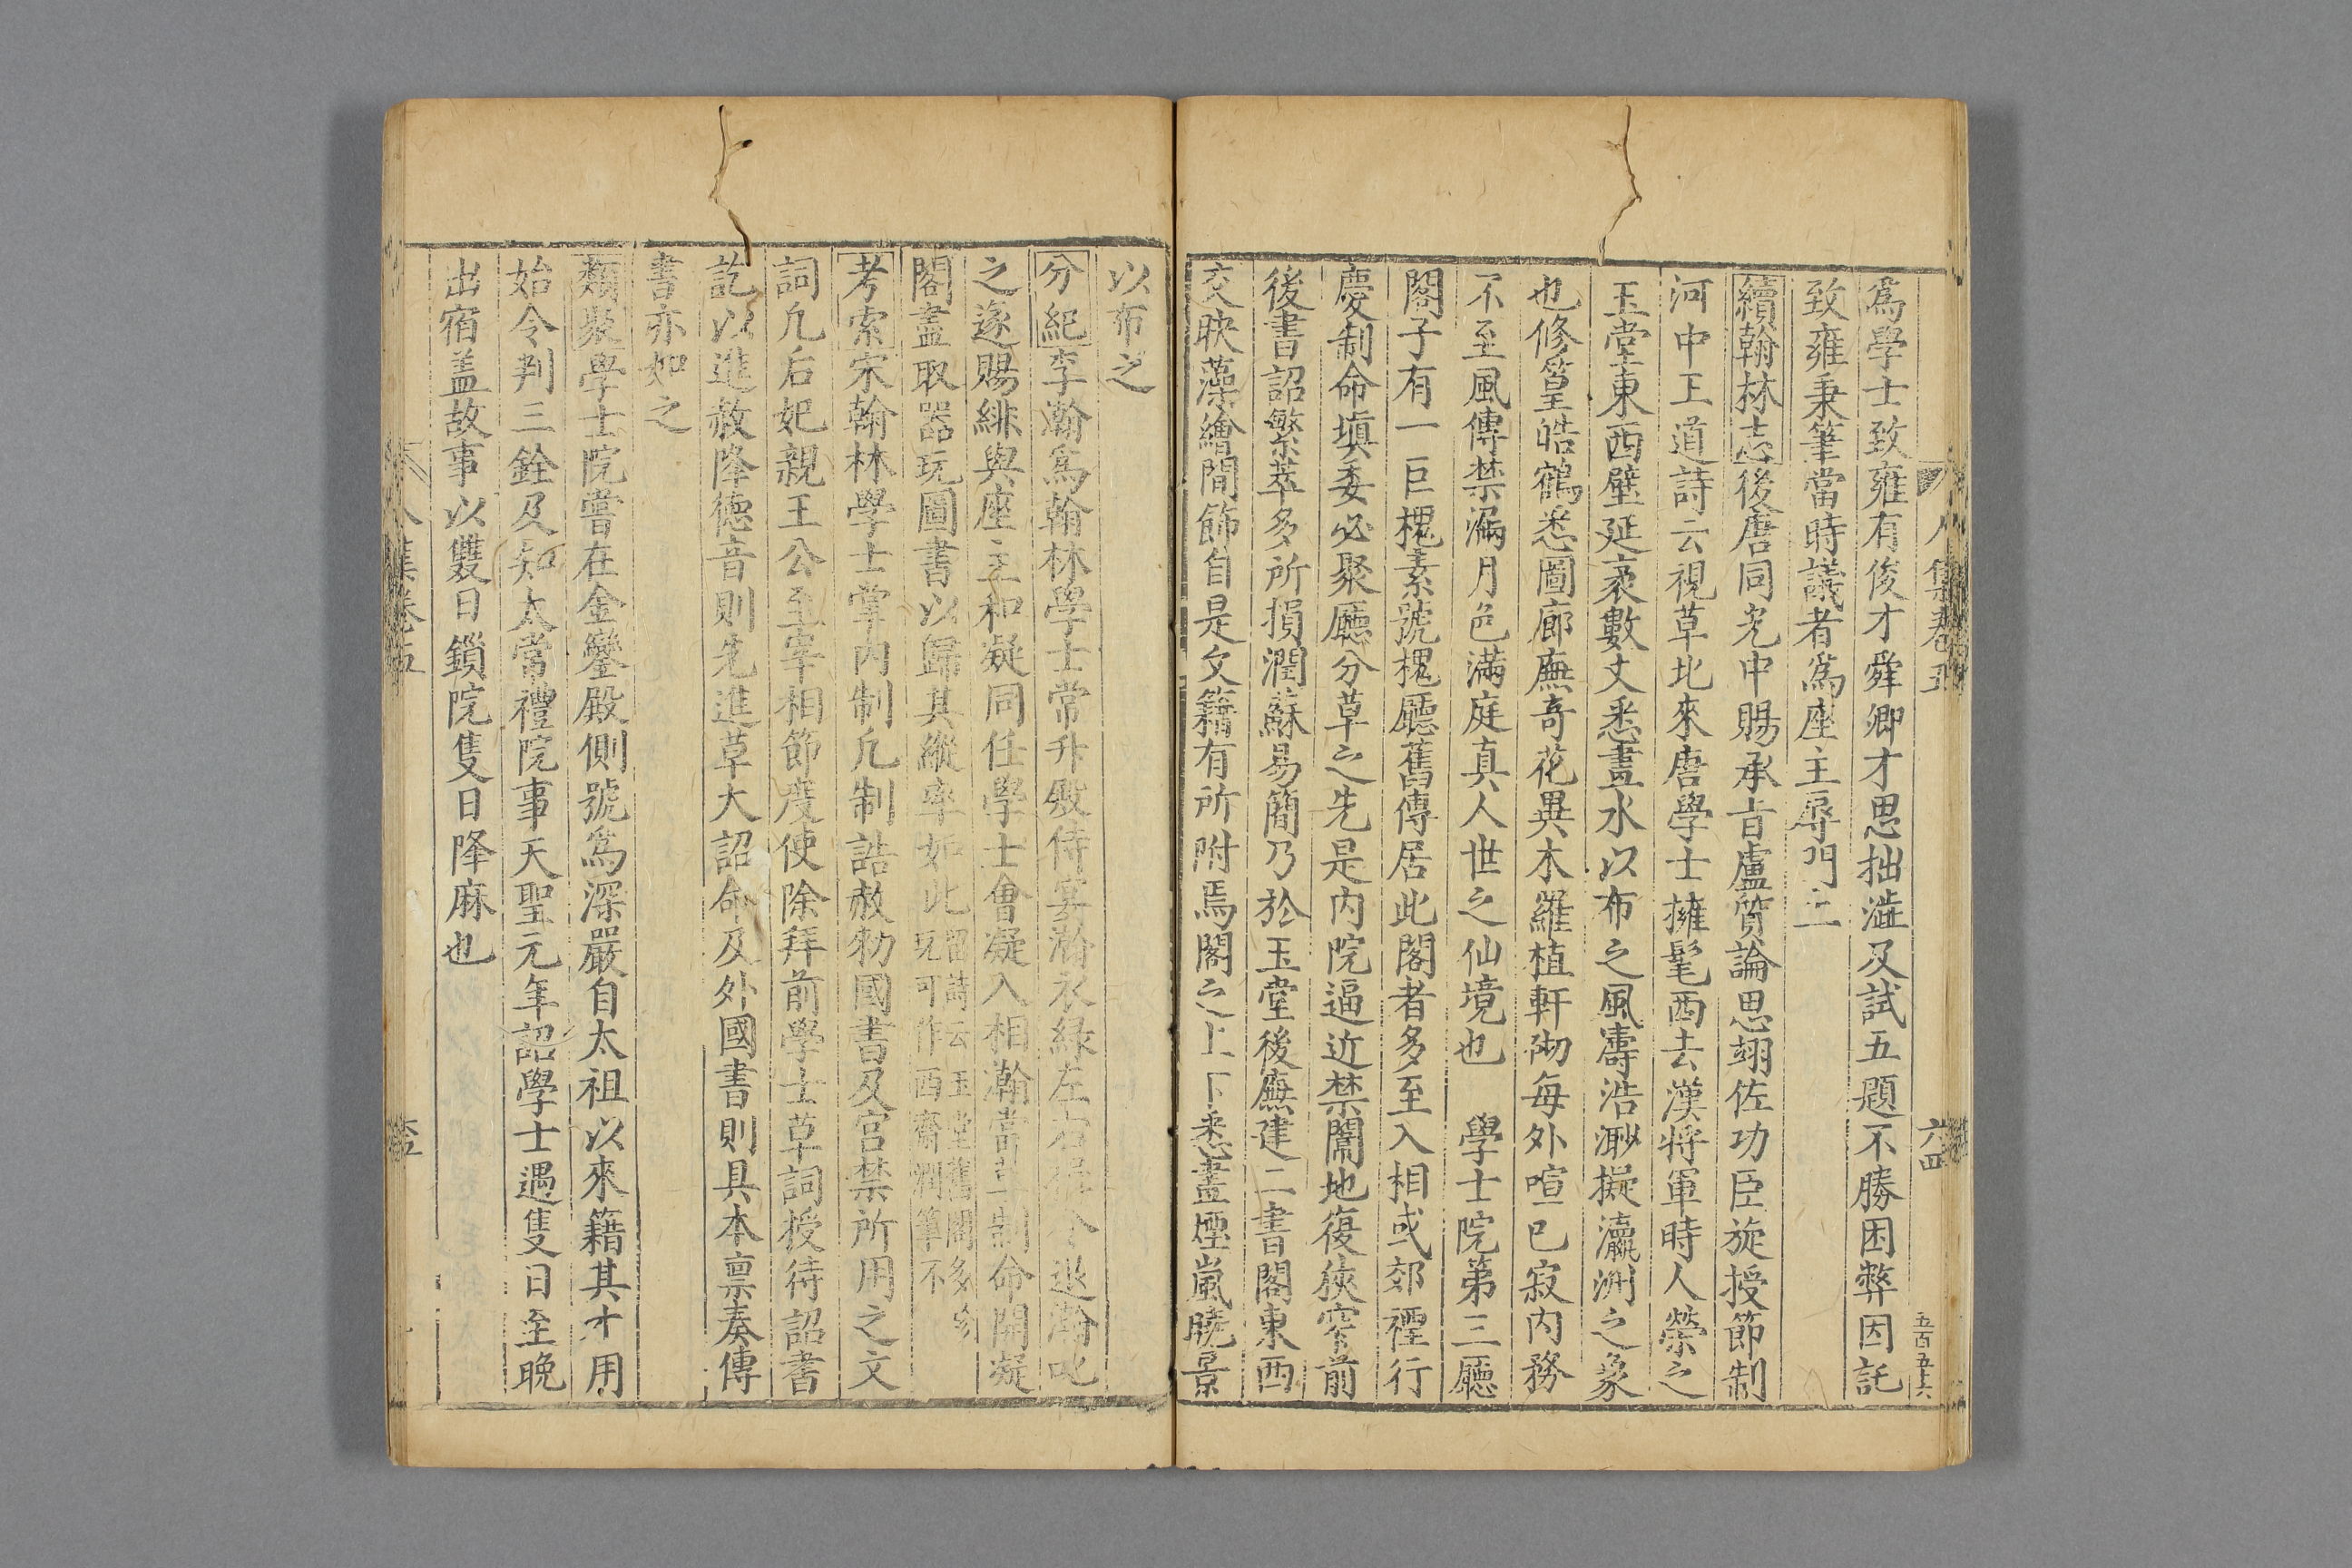 八集卷五
六四
五百五十六
爲學士致雍有俊才舜卿才思拙澁及試五題不勝困弊因託
致雍秉筆當時議者爲座主辱門上
續翰林志後唐同光中賜承旨盧質論思翊佐功臣旋授節制
河中王道詩云視草北來唐學士擁髦西去漢將軍時人榮之
玉堂東西壁延袤數丈悉畫水以布之風濤浩渺擬瀛洲之象
也修篁皓鶴悉圖廊廡奇花異木羅植軒砌每外喧已寂内務
不至風傳禁漏月色滿庭真人世之仙境也 學士院第三廳
閣子有一巨槐素號槐廳舊傳居此閣者多至入相或郊禋行
慶制命塡委必聚廳分草之先是内院逼近禁闈地復狹窄前
後書詔繁萃多所損潤蘇易簡乃於玉堂後廡建二書閣東西
交映藻繪間飾自是文籍有所附焉閣之上下悉畫煙嵐曉景
以布之
分紀李瀚爲翰林學士常升殿侍宴瀚衣緑左右退瀚叱
之遂賜緋與座主和凝同任學士會凝入相瀚當草制命開凝
閣盡取器玩圖書以歸其縱率如此留詩云玉堂舊閣多多
玩可作西齋潤筆不
考索宋翰林學士掌内制凡制誥赦勑國書及宫禁所用之文
詞凡后妃親王公至宰相節度使除拜前學士草詞授待詔書
訖以進赦降德音則先進草大詔命及外國書則具本禀奏傳
書亦如之
類聚學士院嘗在金鑾殿側號爲深嚴自太祖以來籍其才用
始令判三銓及知太常禮院事天聖元年詔學士遇隻日至晚
出宿盖故事以雙日鎖院隻日降麻也
八集卷五
六五